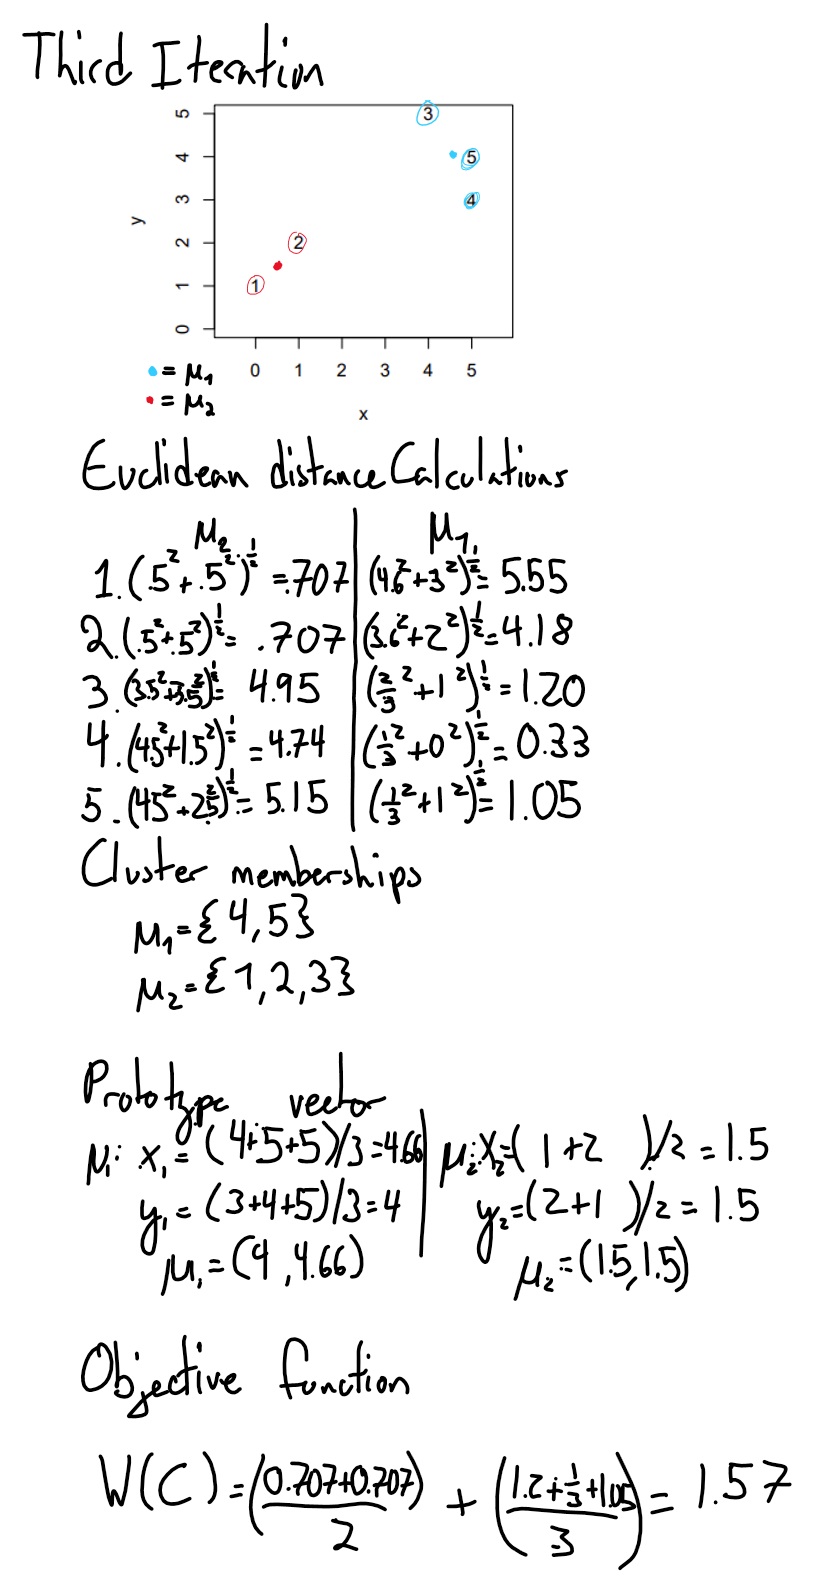 Third Iteration
5
4
3
2
1
0
y
3
5
4
2
1
0 1 2 3 4 5
x
• = μ₁
• = μ₂
Euclidean distance Calculations
μ₂ μ₁
1. (.5²+.5²)^½ = .707 (4.6²+3²)^½ = 5.55
2. (.5²+.5²)^½ = .707 (3.6²+2²)^½ = 4.18
3. (3.5²+3.5²)^½ = 4.95 (⅔²+1²)^½ = 1.20
4. (4.5²+1.5²)^½ = 4.74 (⅓²+0²)^½ = 0.33
5. (4.5²+2.5²)^½ = 5.15 (⅓²+1²)^½ = 1.05
Cluster memberships
μ₁ = {4,5}
μ₂ = {1,2,3}
Prototype vector
μ₁: x₁ = (4+5+5)/3 = 4.66 μ₂: x₂ = (1+2)/2 = 1.5
y₁ = (3+4+5)/3 = 4 y₂ = (2+1)/2 = 1.5
μ₁ = (4, 4.66) μ₂ = (1.5, 1.5)
Objective function
W(C) = (0.707+0.707)/2 + (1.2+⅓+1.05)/3 = 1.57